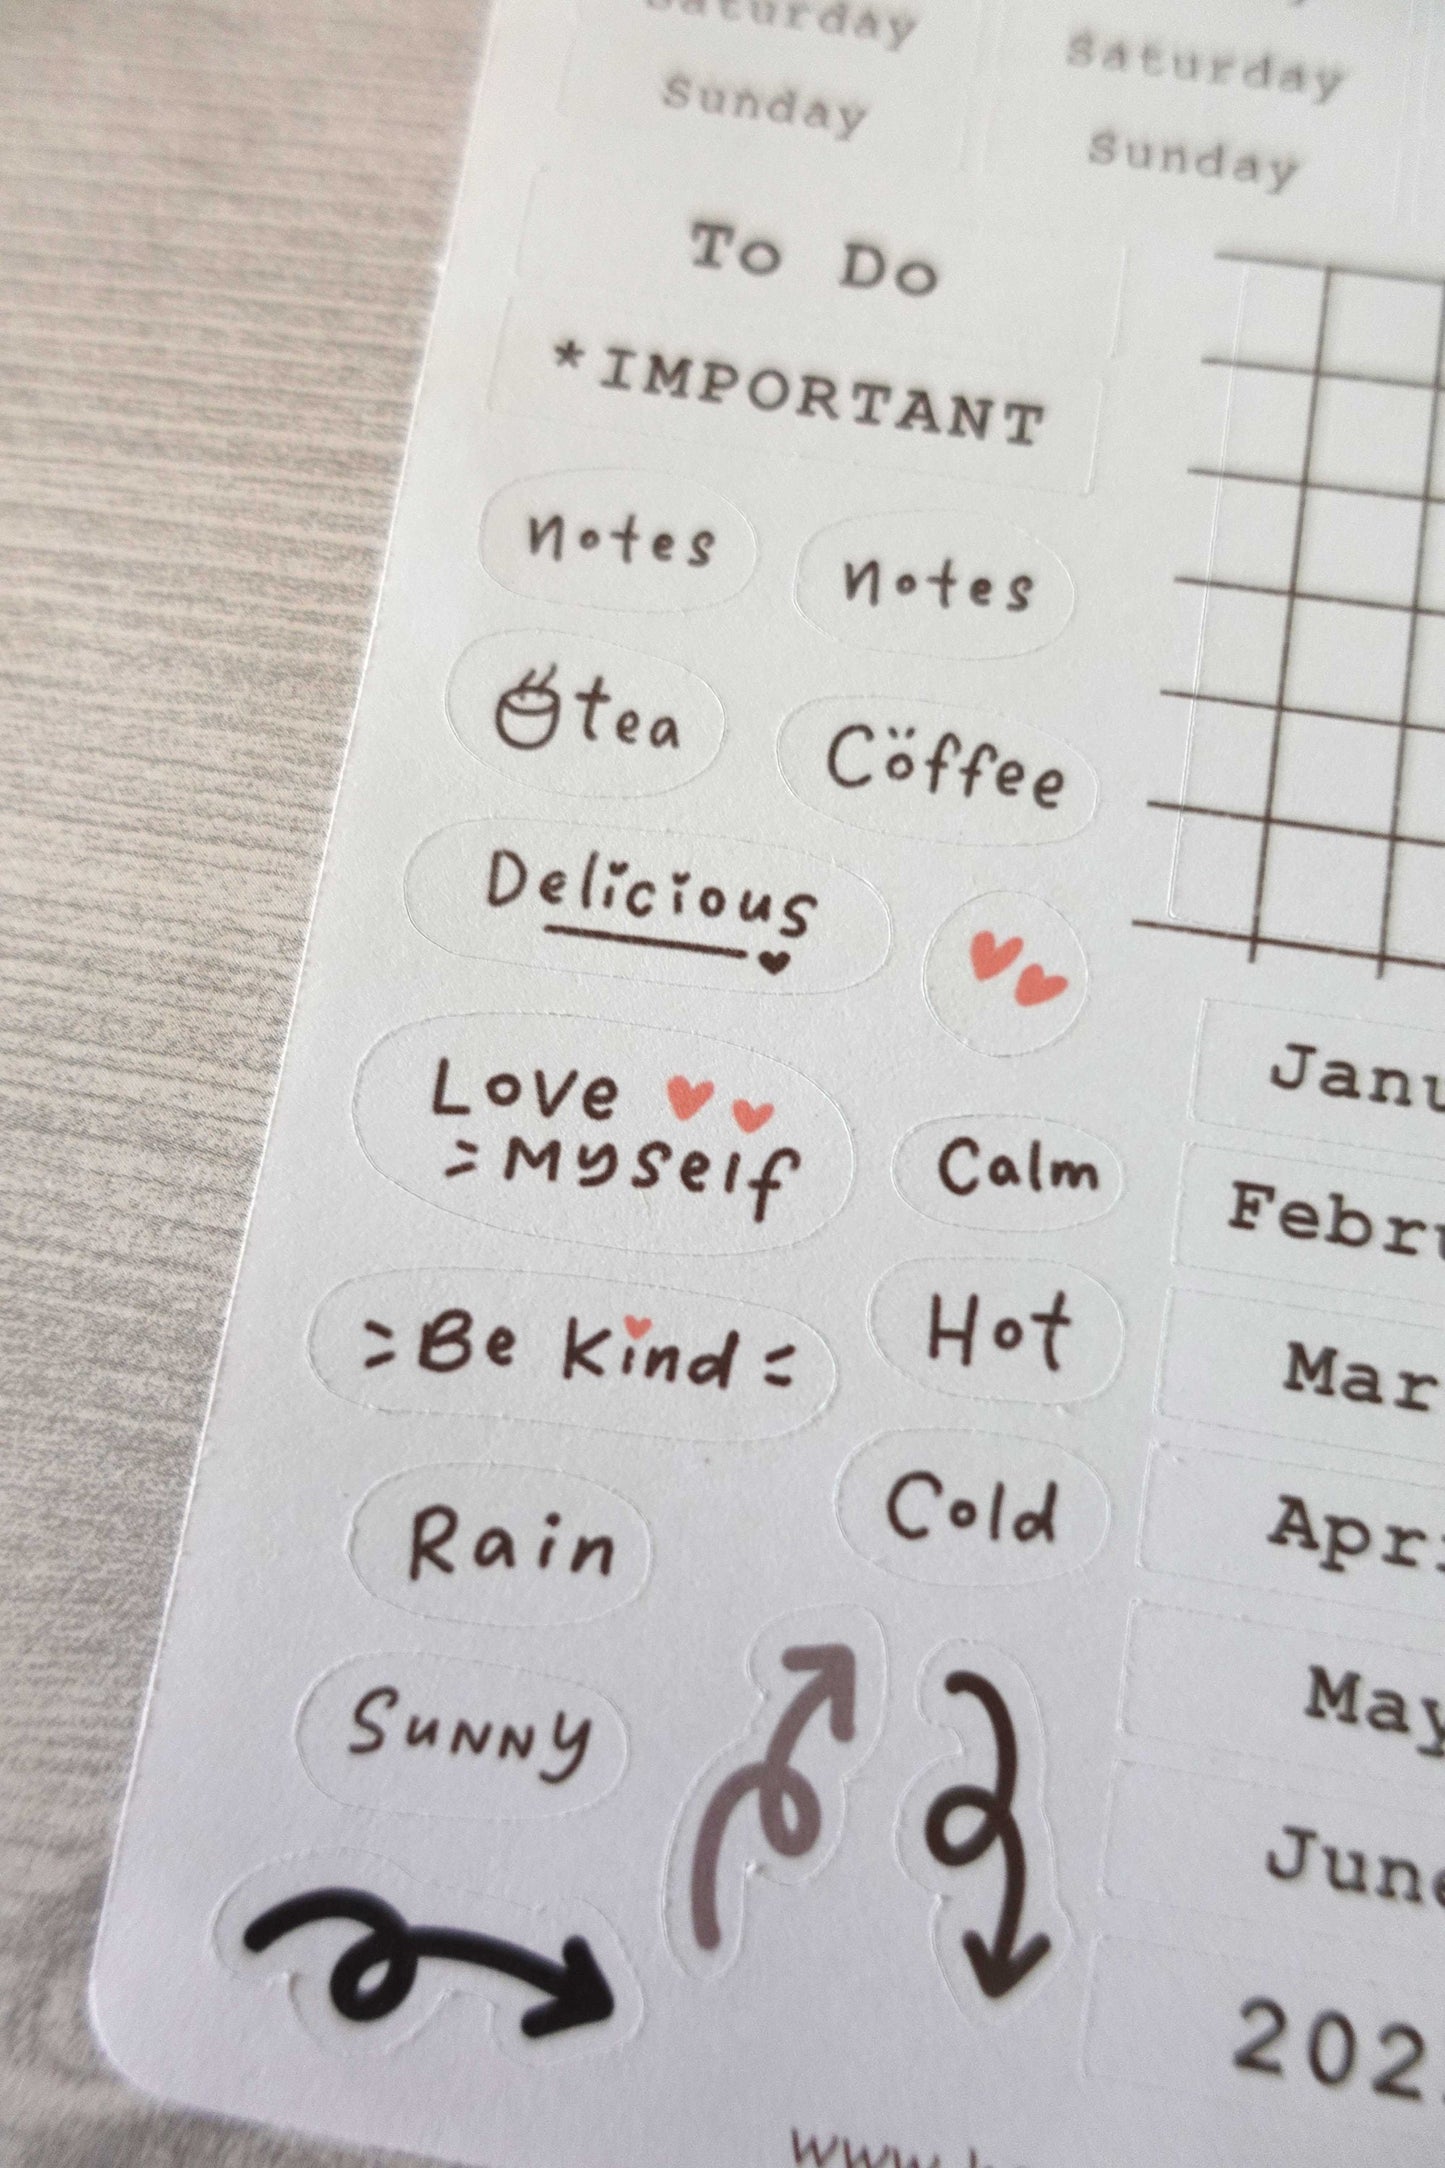 Saturday
Saturday
Sunday
Sunday
To Do
*IMPORTANT
notes
notes
tea
Cöffee
Delicious
Love
Myself
Calm
Be Kind
Hot
Rain
Cold
Sunny
Janu
Febru
Mar
Apri
May
June
202
www.